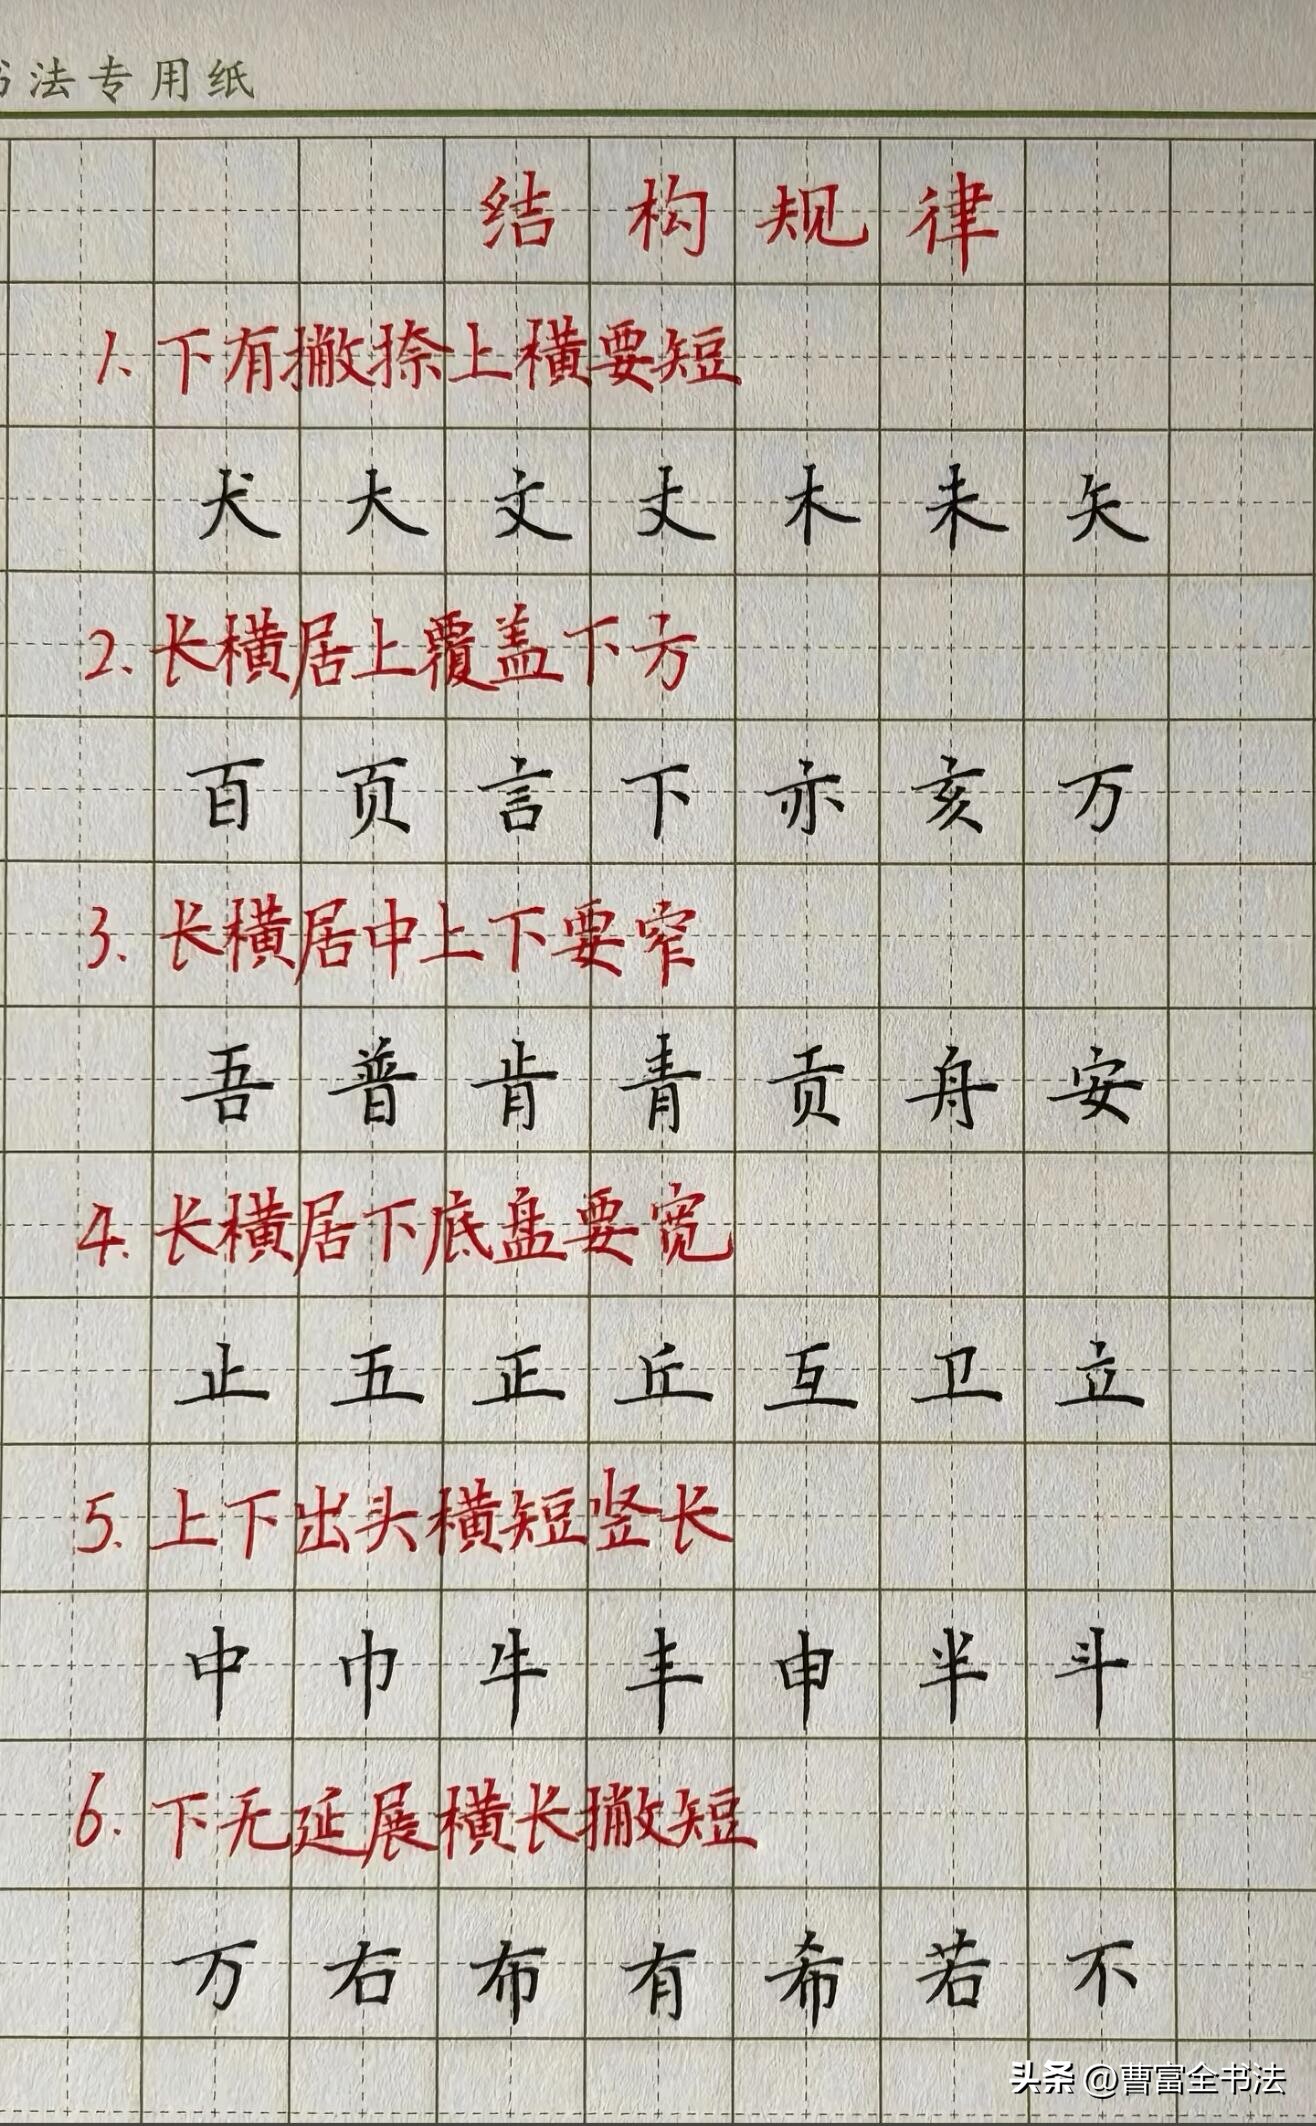 书法专用纸
结构规律
1. 下有撇捺上横要短
犬 大 文 丈 木 未 矢
2. 长横居上覆盖下方
百 页 言 下 亦 亥 万
3. 长横居中上下要窄
吾 普 肯 青 贡 舟 安
4. 长横居下底盘要宽
止 五 正 丘 互 卫 立
5. 上下出头横短竖长
中 巾 牛 丰 申 半 斗
6. 下无延展横长撇短
万 右 布 有 希 若 不
头条 @曹富全书法